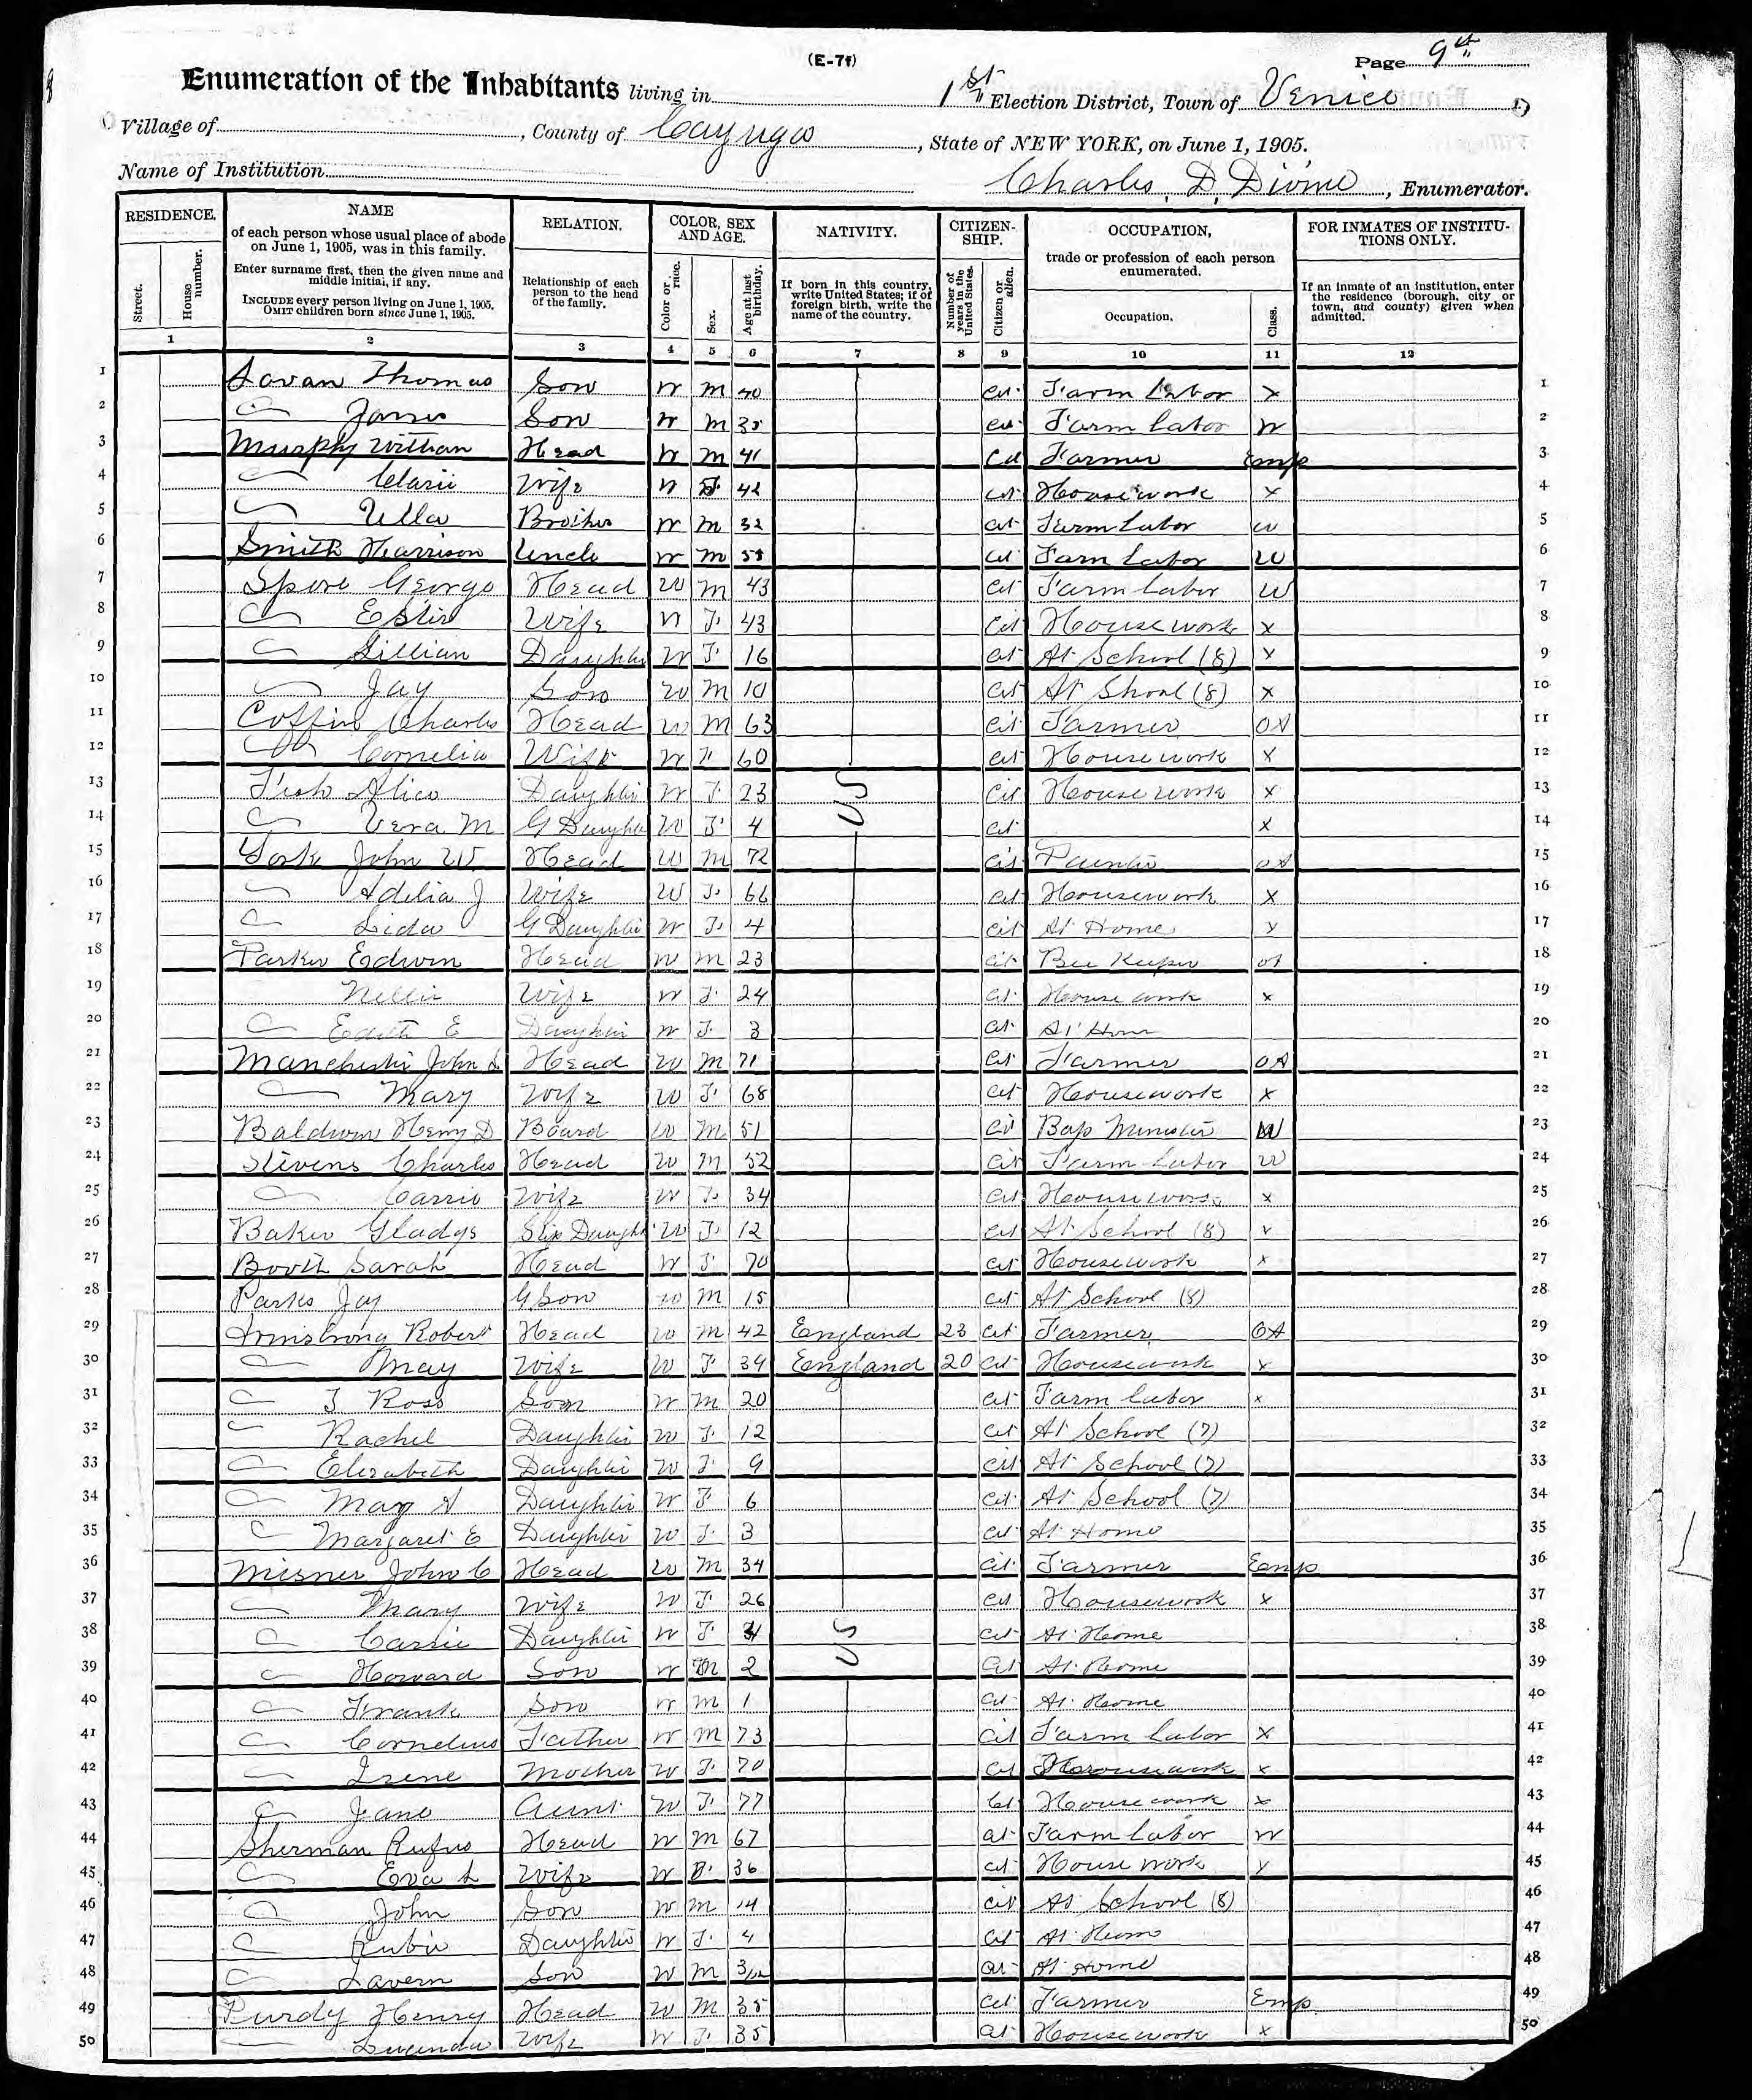 (E-7f)
Page 9th
Enumeration of the Inhabitants living in 1st Election District, Town of Venice
Village of , County of Cayuga , State of NEW YORK, on June 1, 1905.
Name of Institution Charles D. Divine , Enumerator.
RESIDENCE. NAME RELATION. COLOR, SEX AND AGE. NATIVITY. CITIZENSHIP. OCCUPATION, FOR INMATES OF INSTITUTIONS ONLY.
Street. House number. of each person whose usual place of abode on June 1, 1905, was in this family. Enter surname first, then the given name and middle initial, if any. INCLUDE every person living on June 1, 1905. OMIT children born since June 1, 1905. Relationship of each person to the head of the family. Color or race. Sex. Age at last birthday. If born in this country, write United States; if of foreign birth, write the name of the country. Number of years in the United States. Citizen or alien. trade or profession of each person enumerated. Occupation. Class. If an inmate of an institution, enter the residence (borough, city or town, and county) given when admitted.
1 2 3 4 5 6 7 8 9 10 11 12
1 Thomas Son W M 40 Cit Farm Labor X 1
2 James Son W M 35 Cit Farm Labor W 2
3 Murphy William Head W M 41 Cit Farmer Emp 3
4 Wife W F 42 Cit Housework X 4
5 Brother W M 32 Cit Farm Labor W 5
6 Smith Harrison Uncle W M Cit Farm Labor W 6
7 Spore George Head W M 43 Cit Farm Labor W 7
8 Wife W F 43 Cit Housework X 8
9 Lillian Daughter W F 16 Cit At School (8) X 9
10 Jay Son W M 10 Cit At Shool (8) X 10
11 Coffin Charles Head W M 63 Cit Farmer OA 11
12 Cornelia Wife W F 60 Cit Housework X 12
13 Fish Alice Daughter W F 23 US Cit Housework X 13
14 Vera M G Daughter W F 4 Cit X 14
15 York John W. Head W M 72 Cit OA 15
16 Adelia J Wife W F 66 Cit Housework X 16
17 Lida G Daughter W F 4 Cit At Home X 17
18 Parker Edwin Head W M 23 Cit Bee Keeper OA 18
19 Nellie Wife W F 24 Cit Housework X 19
20 Edith E Daughter W F 3 Cit At Home 20
21 Manchester John L Head W M 71 Cit Farmer OA 21
22 Mary Wife W F 68 Cit Housework X 22
23 Baldwin Henry D Board W M 51 Cit Bap Minister W 23
24 Stevens Charles Head W M 52 Cit Farm Labor W 24
25 Carrie Wife W F 34 Cit Housework X 25
26 Baker Gladys Step Daught W F 12 Cit At School (8) X 26
27 Booth Sarah Head W F 70 Cit Housework X 27
28 Parks Jay G Son W M 15 Cit At School (8) 28
29 Armstrong Robert Head W M 42 England 23 Cit Farmer OA 29
30 May Wife W F 34 England 20 Cit Housework X 30
31 Ross Son W M 20 Cit Farm Labor X 31
32 Rachel Daughter W F 12 Cit At School (7) 32
33 Elizabeth Daughter W F 9 Cit At School (7) 33
34 May A Daughter W F 6 Cit At School (7) 34
35 Margaret E Daughter W F 3 Cit At Home 35
36 Misner John C Head W M 34 Cit Farmer Emp 36
37 Mary Wife W F 26 Cit Housework X 37
38 Carrie Daughter W F US Cit At Home 38
39 Howard Son W M 2 Cit At Home 39
40 Frank Son W M 1 Cit At Home 40
41 Cornelius Father W M 73 Cit Farm Labor X 41
42 Irene Mother W F 70 Cit Housework X 42
43 Jane Aunt W F 77 Cit Housework X 43
44 Sherman Rufus Head W M 67 Cit Farm Labor W 44
45 Eva L Wife W F 36 Cit House Work X 45
46 John Son W M 14 Cit At School (8) 46
47 Rubie Daughter W F 4 Cit At Home 47
48 Lavern Son W M 3/12 Cit At Home 48
49 Purdy Henry Head W M 35 Cit Farmer Emp 49
50 Lucinda Wife W F 35 Cit Housework X 50